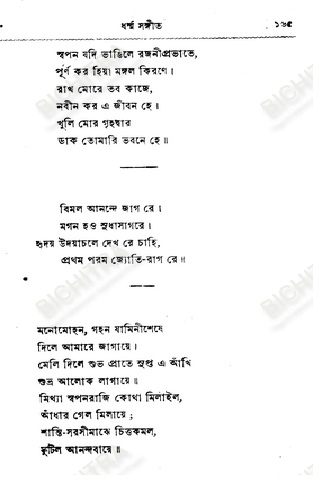 ধর্ম্ম সঙ্গীত ১৬৫
স্বপন যদি ভাঙিলে রজনীপ্রভাতে,
পূর্ণ কর হিয়া মঙ্গল কিরণে।
রাখ মোরে তব কাজে,
নবীন কর এ জীবন হে॥
খুলি মোর গৃহদ্বার
ডাক তোমারি ভবনে হে॥
বিমল আনন্দে জাগ রে।
মগন হও সুধাসাগরে।
হৃদয় উদয়াচলে দেখ রে চাহি,
প্রথম পরম জ্যোতি-রাগ রে॥
মনোমোহন, গহন যামিনীশেষে
দিলে আমারে জাগায়ে।
মেলি দিলে শুভ প্রাতে সুপ্ত এ আঁখি
শুভ্র আলোক লাগায়ে॥
মিথ্যা স্বপনরাজি কোথা মিলাইল,
আঁধার গেল মিলায়ে;
শান্তি-সরসীমাঝে চিত্তকমল,
ফুটিল আনন্দবায়ে॥
BICHITRA